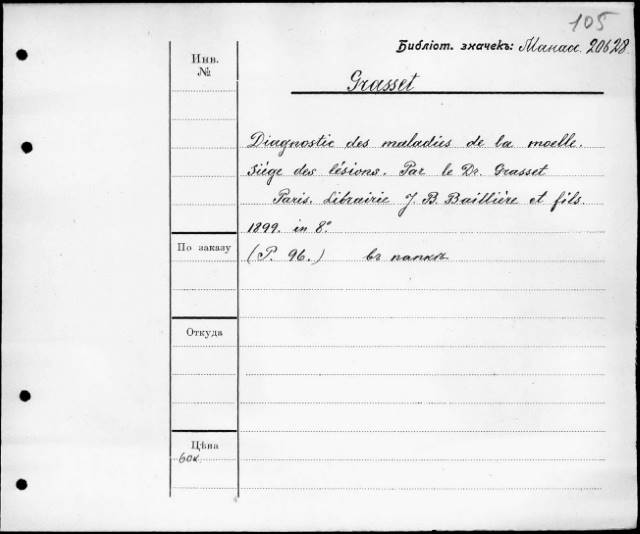 105
Библіот. значекъ: Манас. 20628
Инв.
№
Grasset
Diagnostic des maladies de la moelle.
Siége des lésions. Par le Dr. Grasset
Paris. Librairie J. B. Baillière et fils
1899. in 8º
По заказу
(P. 96.) въ папкѣ
Откуда
Цѣна
60к.